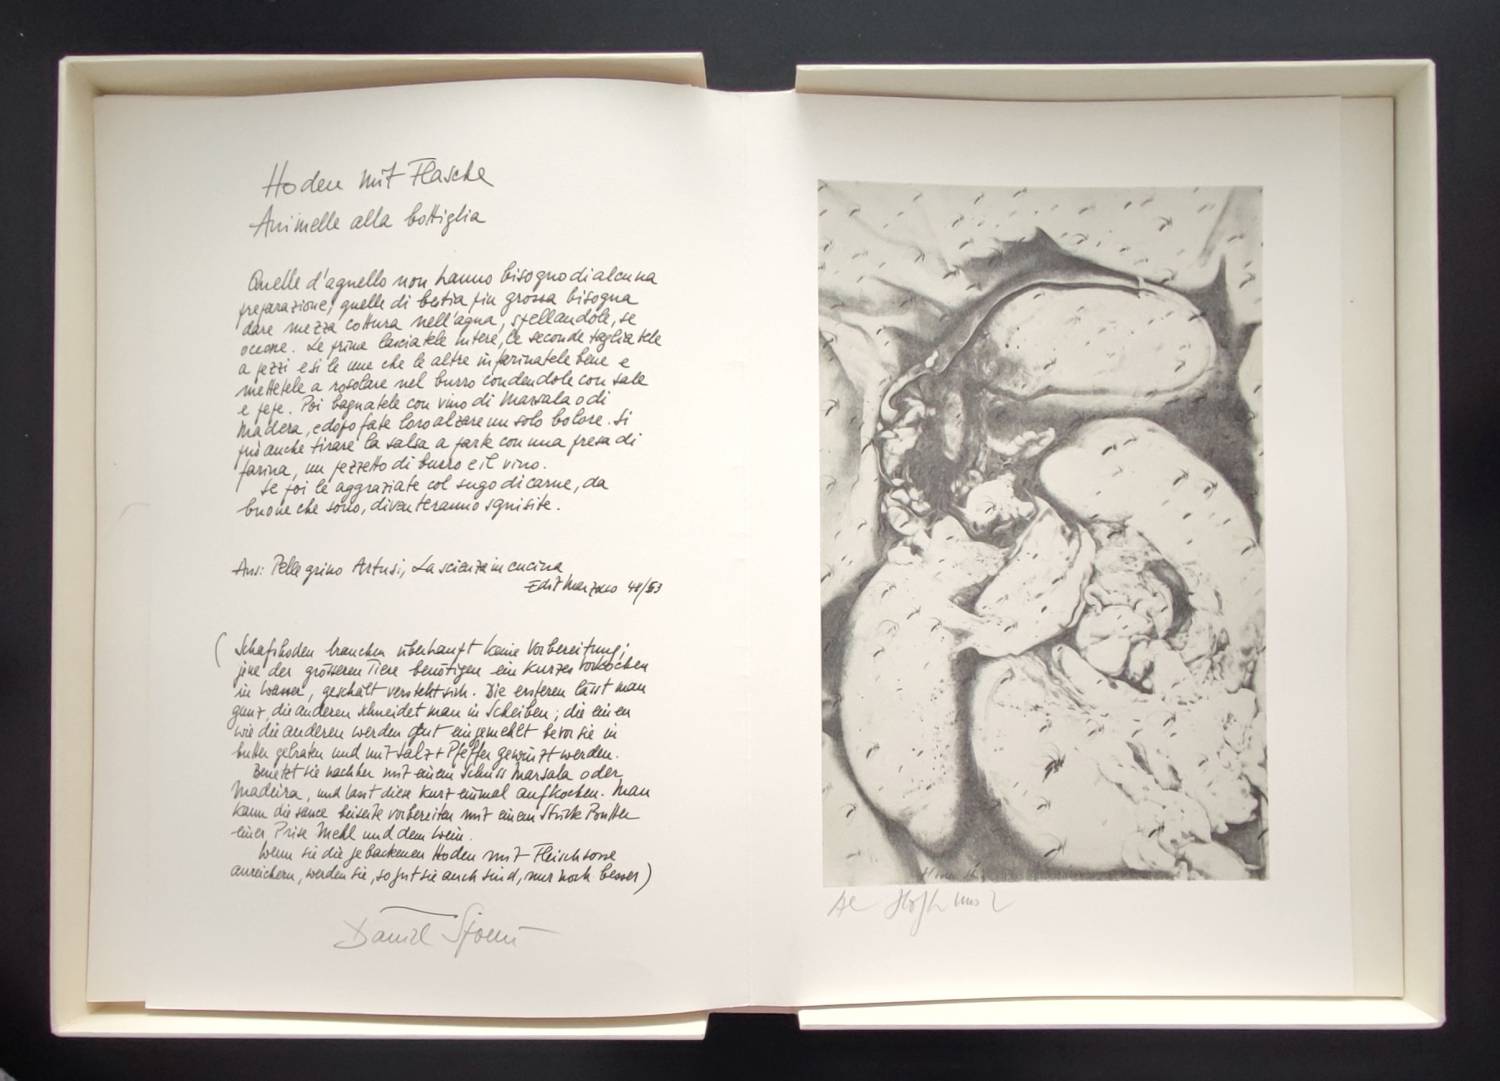 Hoden mit Flasche
Animelle alla bottiglia
Quelle d'agnello non hanno bisogno di alcuna
preparazione, quelle di bestia più grossa bisogna
dare mezza cottura nell'aqua, spellandole, se
occore. Le prime lasciatele intere, le seconde tagliatele
a pezzi e si le une che le altre infarinatele bene e
mettetele a rosolare nel burro condendole con sale
e pepe. Poi bagnatele con vino di Marsala o di
Madera, e dopo fate loro alzare un solo bolore. Si
può anche tirare la salsa a parte con una presa di
farina, un pezzetto di burro e il vino.
Se poi le aggraziate col sugo di carne, da
buone che sono, diventeranno squisite.
Aus: Pellegrino Artusi, La scienza in cucina
Edit Marzocco 48/53
(Schafshoden brauchen überhaupt keine Vorbereitung;
jene der grösseren Tiere benötigen ein kurzes vorkochen
in Wasser, geschält versteht sich. Die ersteren lässt man
ganz, die anderen schneidet man in Scheiben; die einen
wie die anderen werden gut eingemehlt bevor sie in
butter gebraten und mit Salz + Pfeffer gewürzt werden.
Benetzt sie nachher mit einem Schuss Marsala oder
Madeira, und lasst diese kurz einmal aufkochen. Man
kann die sauce beiseite vorbereiten mit einem Stück Butter
einer Prise Mehl und dem Wein.
Wenn sie die gebackenen Hoden mit Fleischsosse
anreichern, werden sie, so gut sie auch sind, nur noch besser)
Daniel Spoerri